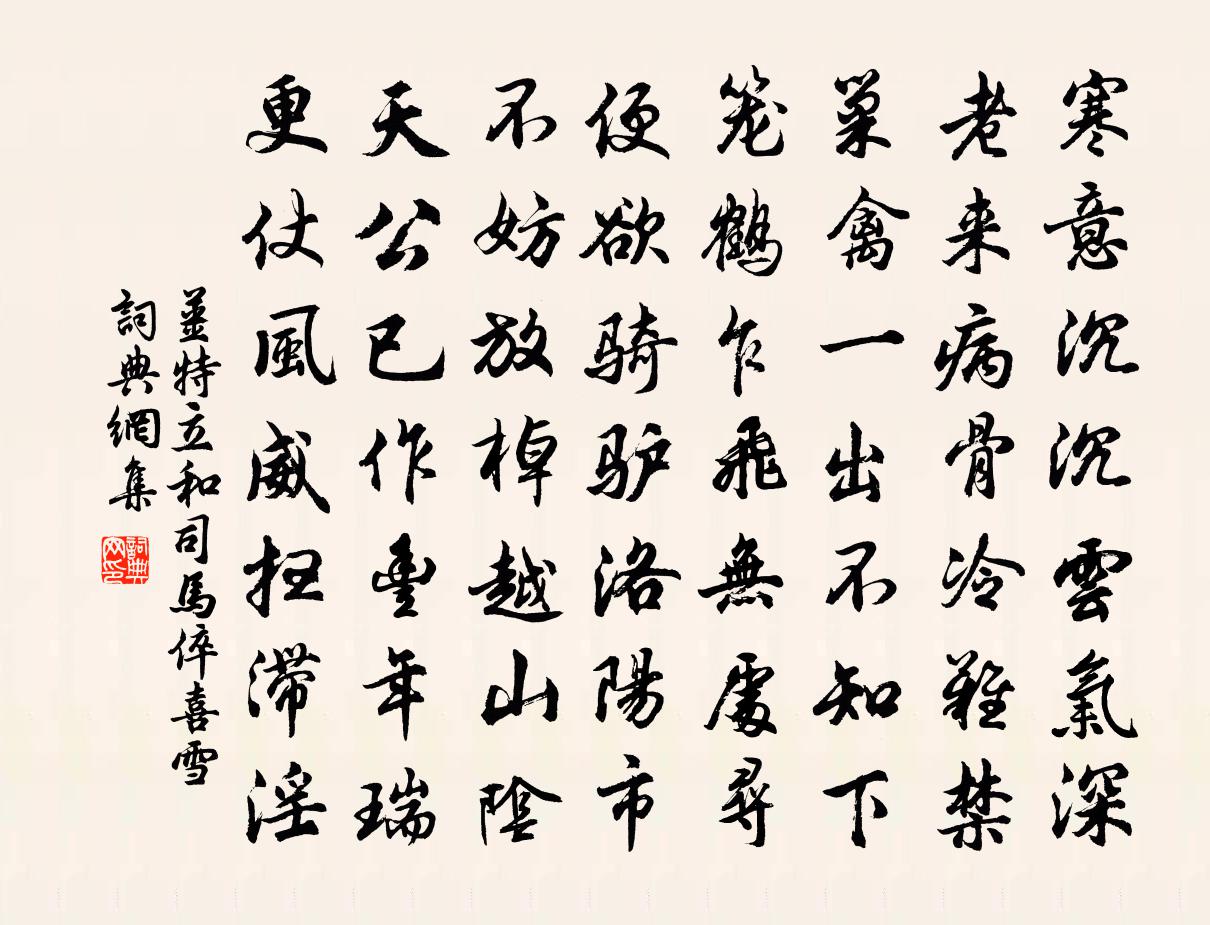 寒意沉沉雲氣深
老来病骨冷難禁
巢禽一出不知下
笼鶴乍飛無處尋
便欲骑驴洛陽市
不妨放棹越山陰
天公已作豊年瑞
更仗風威扫滞淫
姜特立和司馬倅喜雪
詞典網集
詞典网印